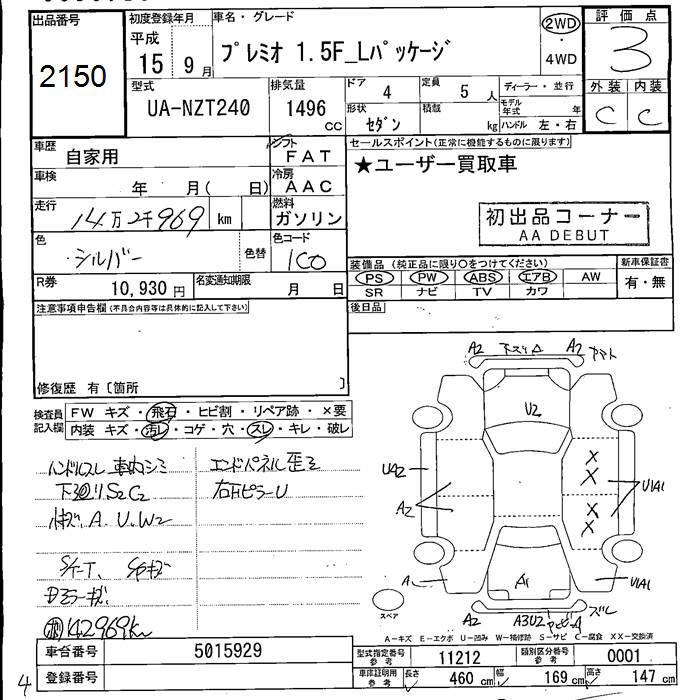 出品番号
2150
初度登録年月
平成
15 9月
車名・グレード
プレミオ 1.5F_Lパッケージ
2WD
・
4WD
評価点
3
外装 内装
C C
型式
UA-NZT240
排気量
1496
cc
ドア 4
定員 5 人
形状 セダン
積載 kg
ディーラー・並行
モデル年式 年
ハンドル 左・右
車歴
自家用
シフト
FAT
車検
年 月( 日)
冷房
AAC
走行
14万2千969
km
燃料
ガソリン
色
シルバー
色替
色コード
1C0
R券
10,930 円
名変通知期限
月 日
セールスポイント(正常に機能するものに限ります)
★ユーザー買取車
初出品コーナー
AA DEBUT
装備品 (純正品に限り○をつけてください)
PS PW ABS エアB AW
SR ナビ TV カワ
新車保証書
有・無
後日品
注意事項申告欄(不具合内容等は具体的に記入して下さい)
修復歴 有〔箇所 〕
検査員
記入欄
FW キズ・飛石・ヒビ割・リペア跡・×要
内装 キズ・汚レ・コゲ・穴・スレ・キレ・破レ
ハンドルスレ 車内シミ
エンドパネル歪ミ
下廻りS2C2
右Hピラー U
キズ、A、U、W2
142969km
A2 下スリA A2
U2
UA2
A2
X
X
X
X
U1A1
A
A1
U1A1
A2 A3U2
ズレ
スペア
A-キズ E-エクボ U-凹み W-補修跡 S-サビ C-腐食 XX-交換済
車台番号
5015929
登録番号
型式指定番号
参考
11212
類別区分番号
参考
0001
車庫証明用
参考
長さ
460 cm
幅
169 cm
高さ
147 cm
4